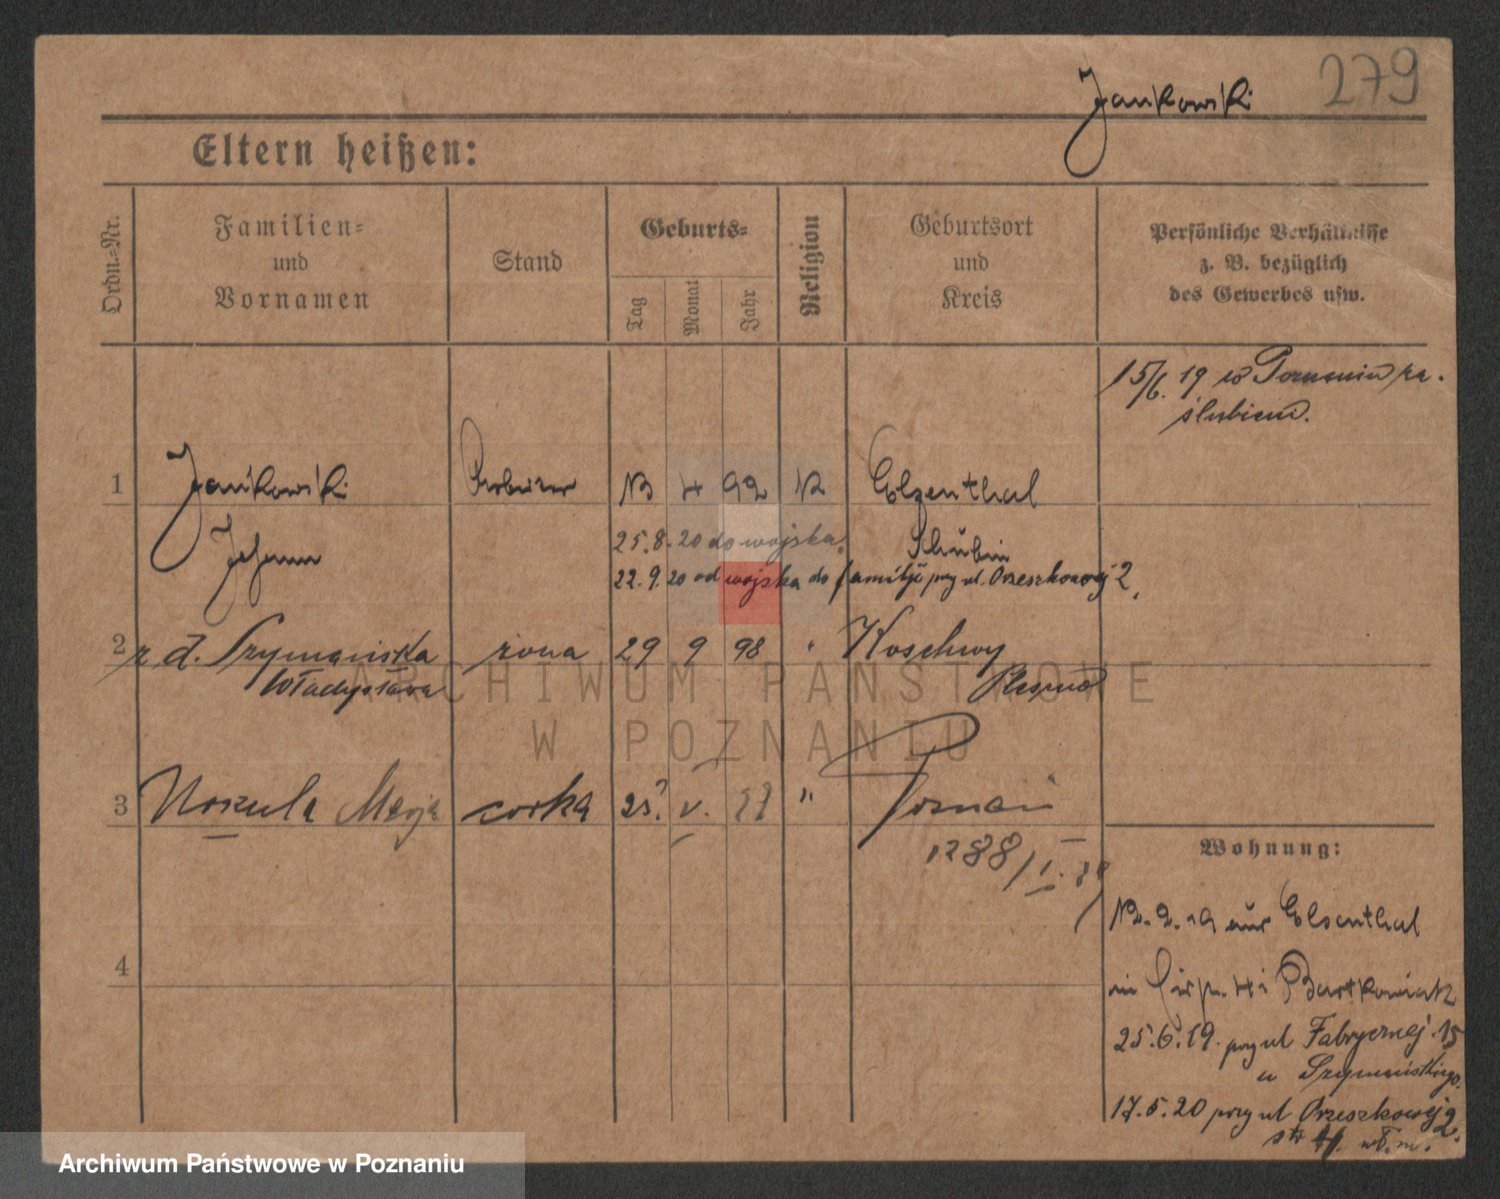 279
Jankowski
Eltern heißen:
Ordn.-Nr.
Familien-
und
Vornamen
Stand
Geburts-
Tag
Monat
Jahr
Religion
Geburtsort
und
Kreis
Persönliche Verhältnisse
z. B. bezüglich
des Gewerbes usw.
15/6. 19 w Poznaniu za-
ślubieni.
1 Jankowski 4 92 Elsenthal
Johann Schubin
25.8.20 do wojska.
22.9.20 od wojska do familji przy ul. Orzeszkowej 2.
2 z d. Szymańska żona 29 9 98 " Koschwy
Władysława
3 Urszula córka 25. V. " Poznań
1288/I.
4
Wohnung:
2. 19 aus Elsenthal
in 4 i Bartkowiak
25.6.19. przy ul Fabrycznej 15
u Szymańskiego.
17.5.20 przy ul Orzeszkowej 2.
ARCHIWUM PAŃSTWOWE
W POZNANIU
Archiwum Państwowe w Poznaniu